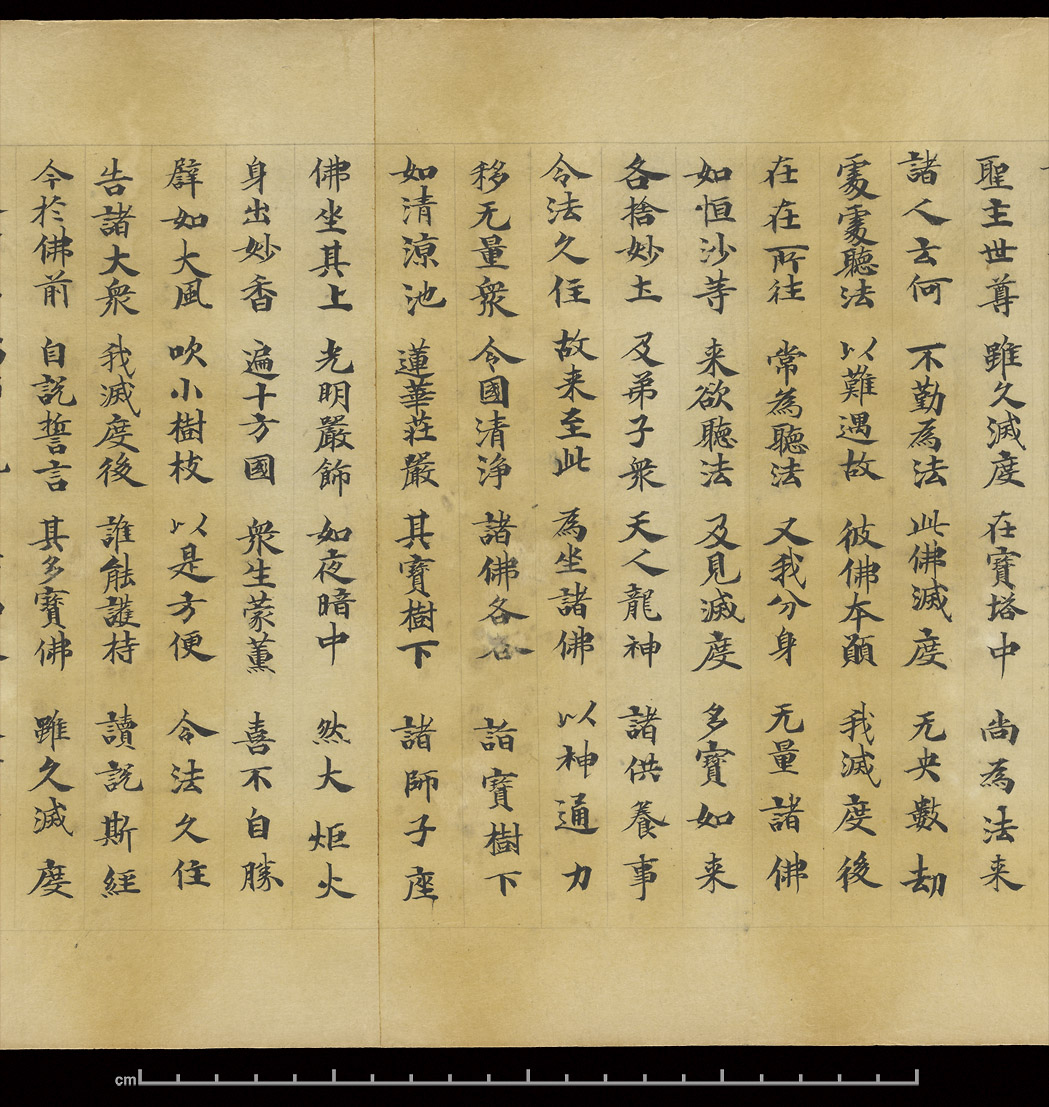 聖主世尊 雖久滅度 在寶塔中 尚為法来
諸人云何 不勤為法 此佛滅度 无央數劫
䖏䖏聽法 以難遇故 彼佛本願 我滅度後
在在所往 常為聽法 又我分身 无量諸佛
如恒沙等 来欲聽法 及見滅度 多寶如来
各捨妙土 及弟子衆 天人龍神 諸供養事
令法久住 故来至此 為坐諸佛 以神通力
移无量衆 令國清淨 諸佛各各 詣寶樹下
如清涼池 蓮華莊嚴 其寶樹下 諸師子座
佛坐其上 光明嚴飾 如夜暗中 然大炬火
身出妙香 遍十方國 衆生蒙薰 喜不自勝
辟如大風 吹小樹枝 以是方便 令法久住
告諸大衆 我滅度後 誰能護持 讀說斯經
今於佛前 自說誓言 其多寶佛 雖久滅度